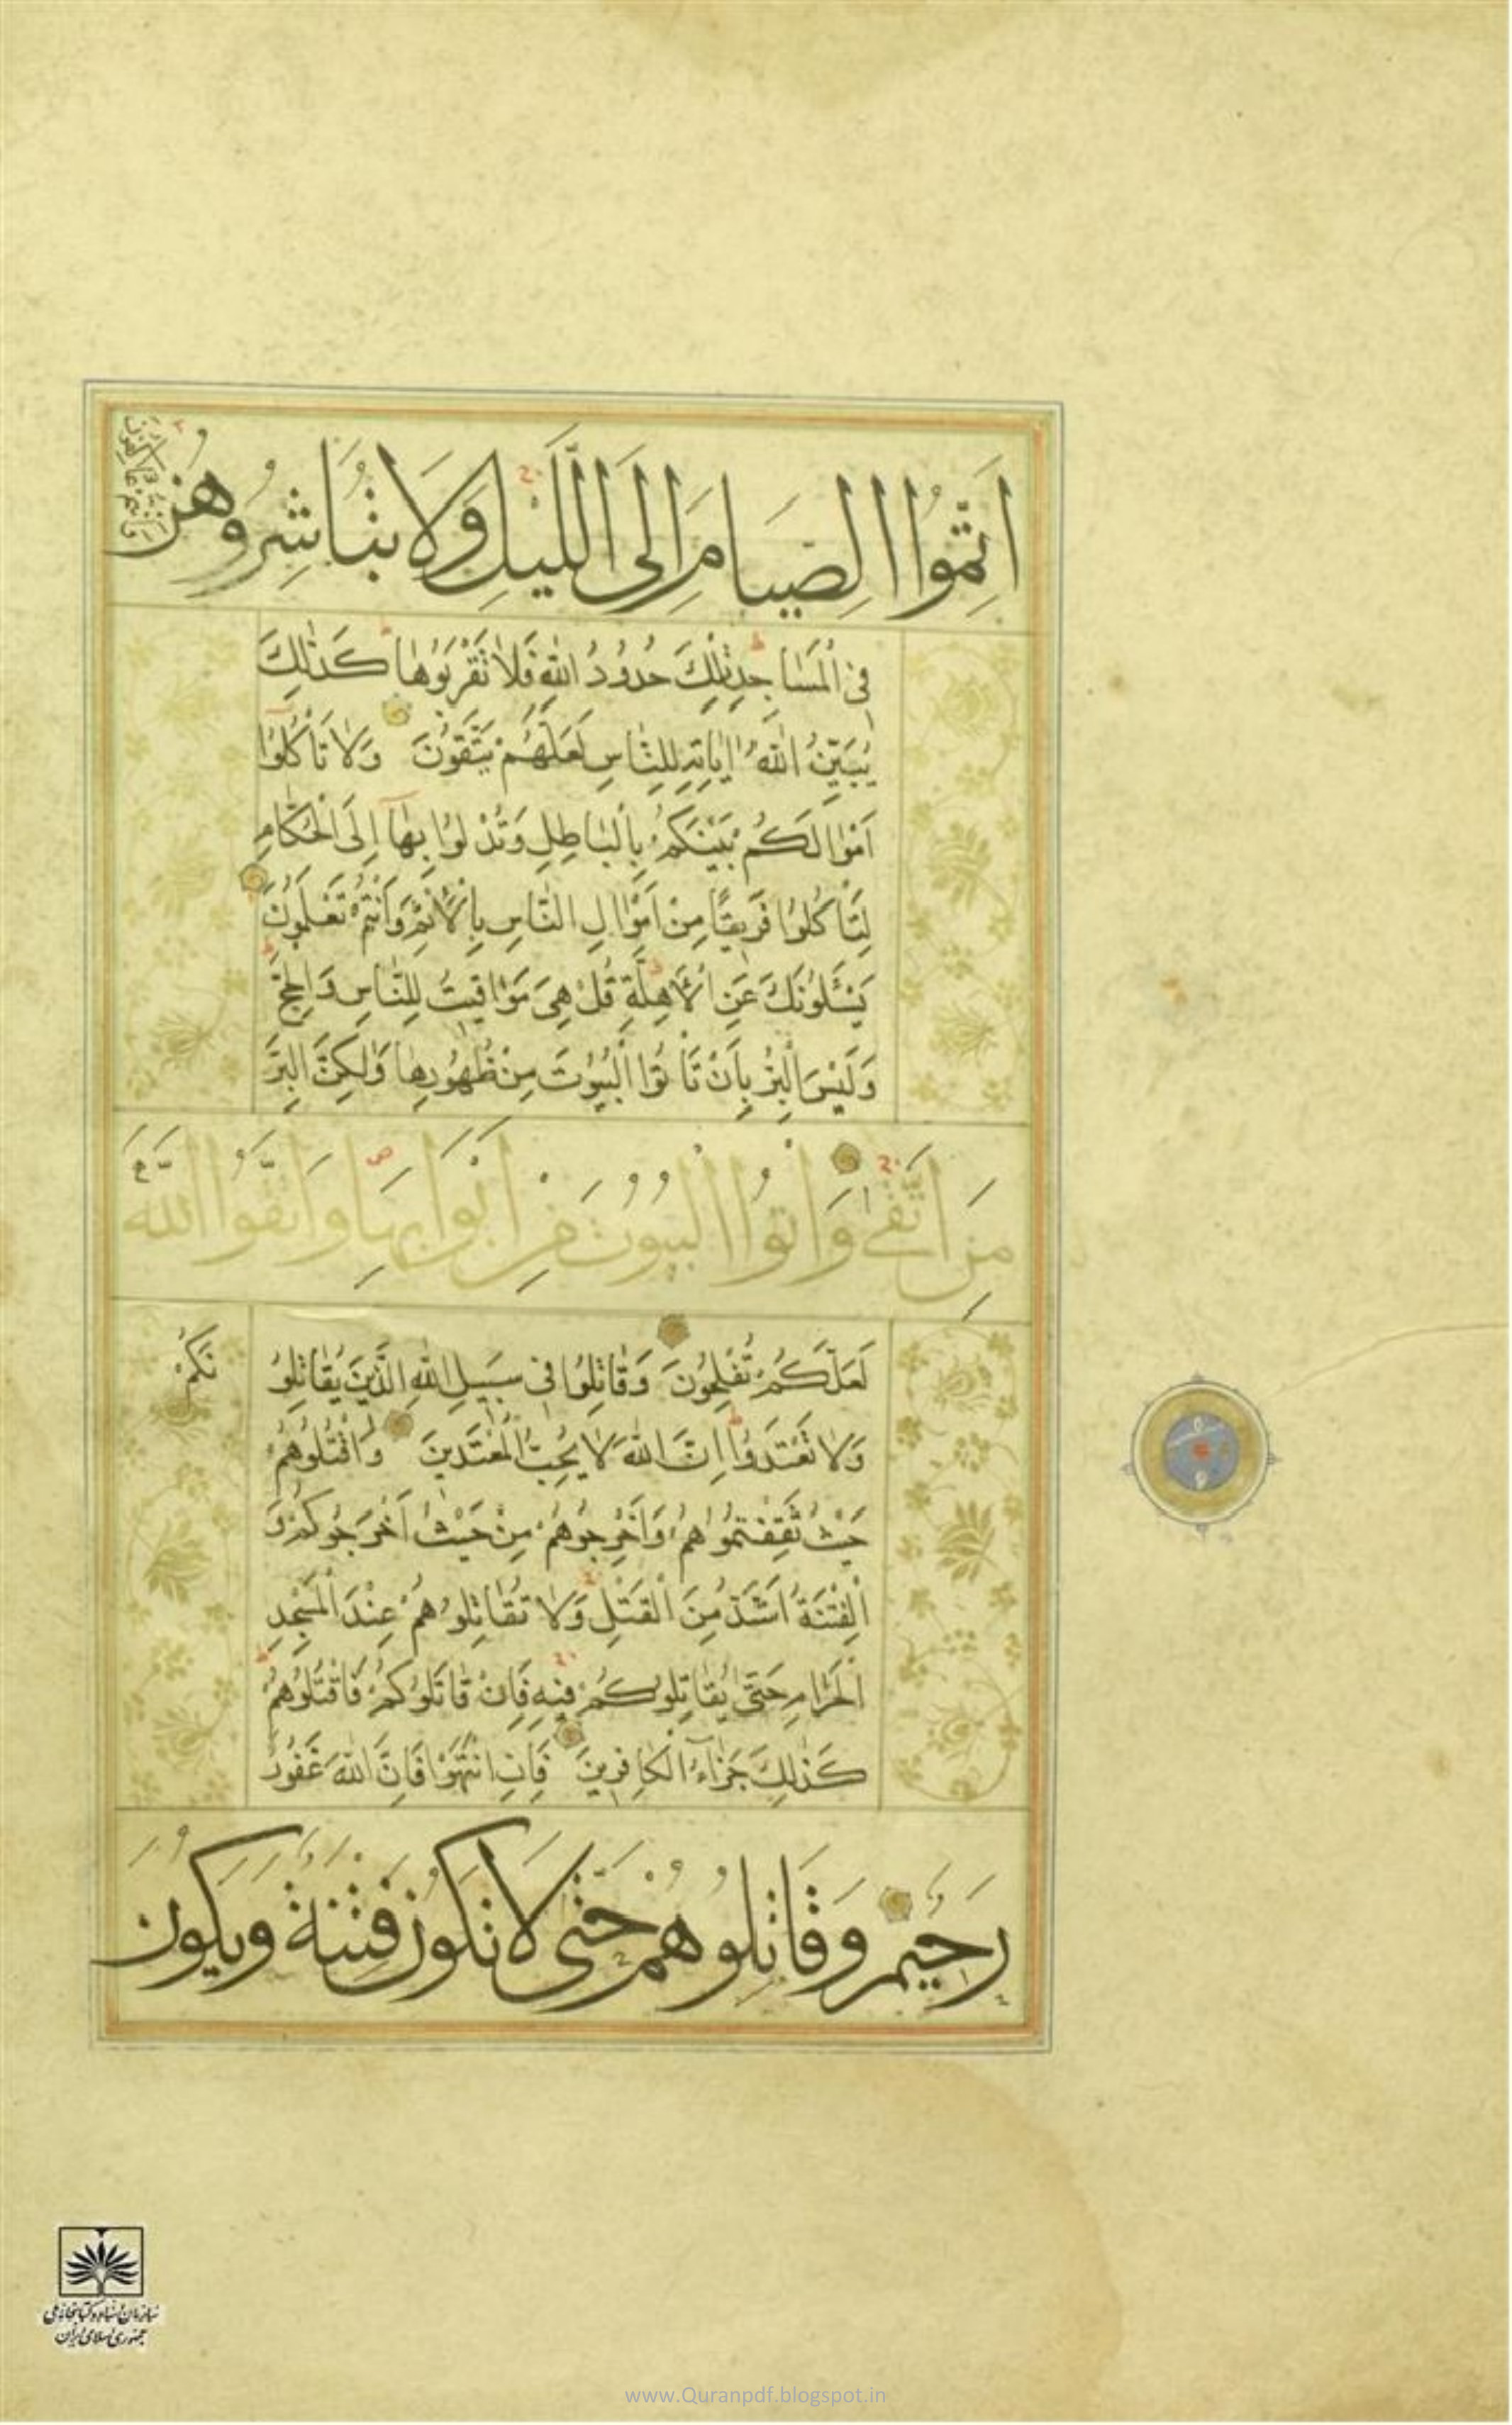 اَتِمُّوا الصِّيَامَ اِلَى اللَّيْلِ وَلَا تُبَاشِرُوهُنَّ
وَاَنْتُمْ عَاكِفُونَ
فِى الْمَسَاجِدِ تِلْكَ حُدُودُ اللّٰهِ فَلَا تَقْرَبُوهَا كَذٰلِكَ
يُبَيِّنُ اللّٰهُ اٰيَاتِهٖ لِلنَّاسِ لَعَلَّهُمْ يَتَّقُونَ وَلَا تَاْكُلُوٓا
اَمْوَالَكُمْ بَيْنَكُمْ بِالْبَاطِلِ وَتُدْلُوا بِهَآ اِلَى الْحُكَّامِ
لِتَاْكُلُوا فَرِيقًا مِنْ اَمْوَالِ النَّاسِ بِالْاِثْمِ وَاَنْتُمْ تَعْلَمُونَ
يَسْئَلُونَكَ عَنِ الْاَهِلَّةِ قُلْ هِىَ مَوَاقِيتُ لِلنَّاسِ وَالْحَجِّ
وَلَيْسَ الْبِرُّ بِاَنْ تَاْتُوا الْبُيُوتَ مِنْ ظُهُورِهَا وَلٰكِنَّ الْبِرَّ
مَنِ اتَّقٰى وَاْتُوا الْبُيُوتَ مِنْ اَبْوَابِهَا وَاتَّقُوا اللّٰهَ
لَعَلَّكُمْ تُفْلِحُونَ وَقَاتِلُوا فِى سَبِيلِ اللّٰهِ الَّذِينَ يُقَاتِلُو نَكُمْ
وَلَا تَعْتَدُوا اِنَّ اللّٰهَ لَا يُحِبُّ الْمُعْتَدِينَ وَاقْتُلُوهُمْ
حَيْثُ ثَقِفْتُمُوهُمْ وَاَخْرِجُوهُمْ مِنْ حَيْثُ اَخْرَجُوكُمْ وَ
الْفِتْنَةُ اَشَدُّ مِنَ الْقَتْلِ وَلَا تُقَاتِلُوهُمْ عِنْدَ الْمَسْجِدِ
الْحَرَامِ حَتّٰى يُقَاتِلُوكُمْ فِيهِ فَاِنْ قَاتَلُوكُمْ فَاقْتُلُوهُمْ
كَذٰلِكَ جَزَآءُ الْكَافِرِينَ فَاِنِ انْتَهَوْا فَاِنَّ اللّٰهَ غَفُورٌ
رَحِيمٌ وَقَاتِلُوهُمْ حَتّٰى لَا تَكُونَ فِتْنَةٌ وَيَكُونَ
سازمان اسناد و کتابخانه ملی
جمهوری اسلامی ایران
www.Quranpdf.blogspot.in